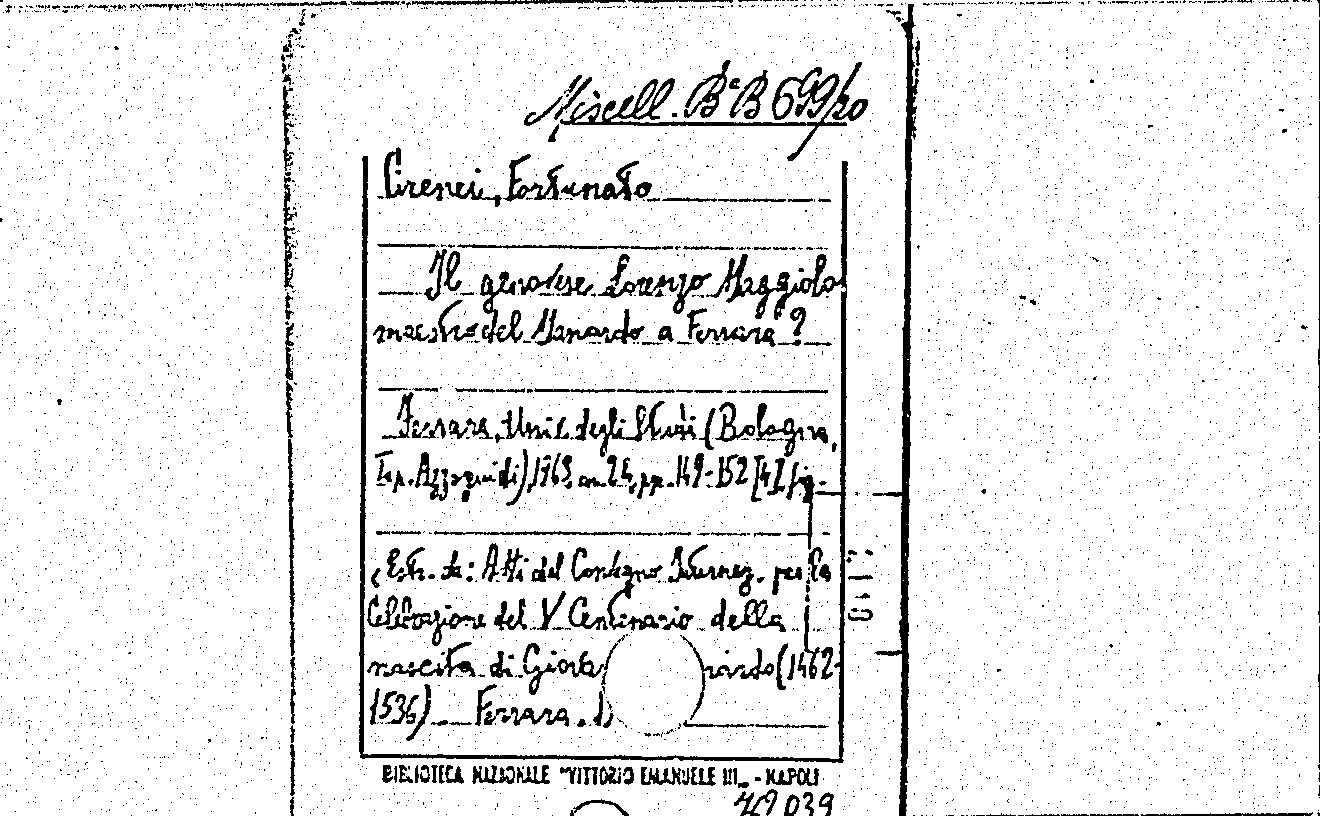 Miscell. B.B 699/20
Cirenei, Fortunato
Il genovese Lorenzo Maggiolo
maestro del Manardo a Ferrara?
Ferrara, Univ. degli Studi (Bologna,
Tip. Azzoguidi), 1963, cm 24, pp. 149-152 [4] fig.
(Estr. da: Atti del Convegno Internaz. per la
Celebrazione del V Centenario della
nascita di Giova nardo (1462-
1536) Ferrara.
BIBLIOTECA NAZIONALE "VITTORIO EMANUELE III„ - NAPOLI